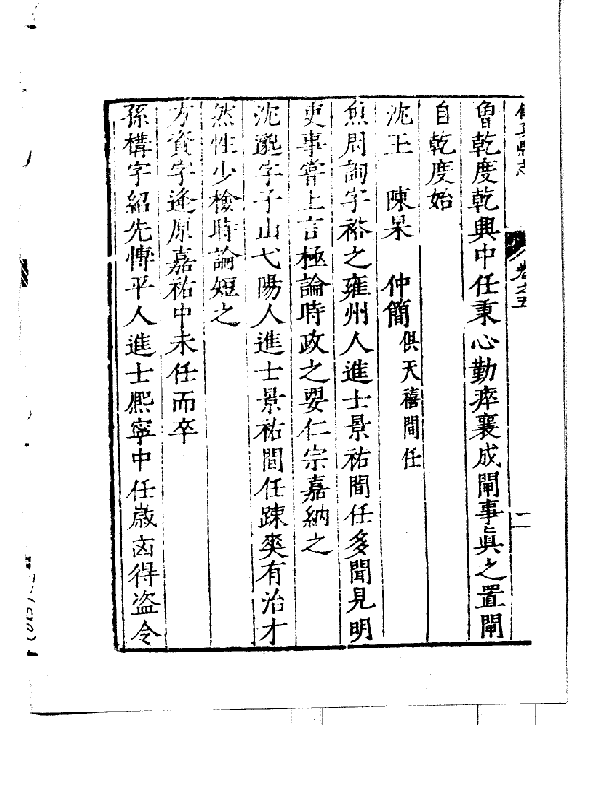 儀真縣志 卷之五
魯乾度乾興中任秉心勤瘁襄成閘事真之置閘
自乾度始
沈王 陳杲 仲簡 俱天禧間任
魚周詢字裕之雍州人進士景祐間任多聞見明
吏事嘗上言極論時政之要仁宗嘉納之
沈邈字子山弋陽人進士景祐間任踈爽有治才
然性少檢時論短之
方資字逢原嘉祐中未任而卒
孫構字紹先慱平人進士熙寧中任歲凶得盗令